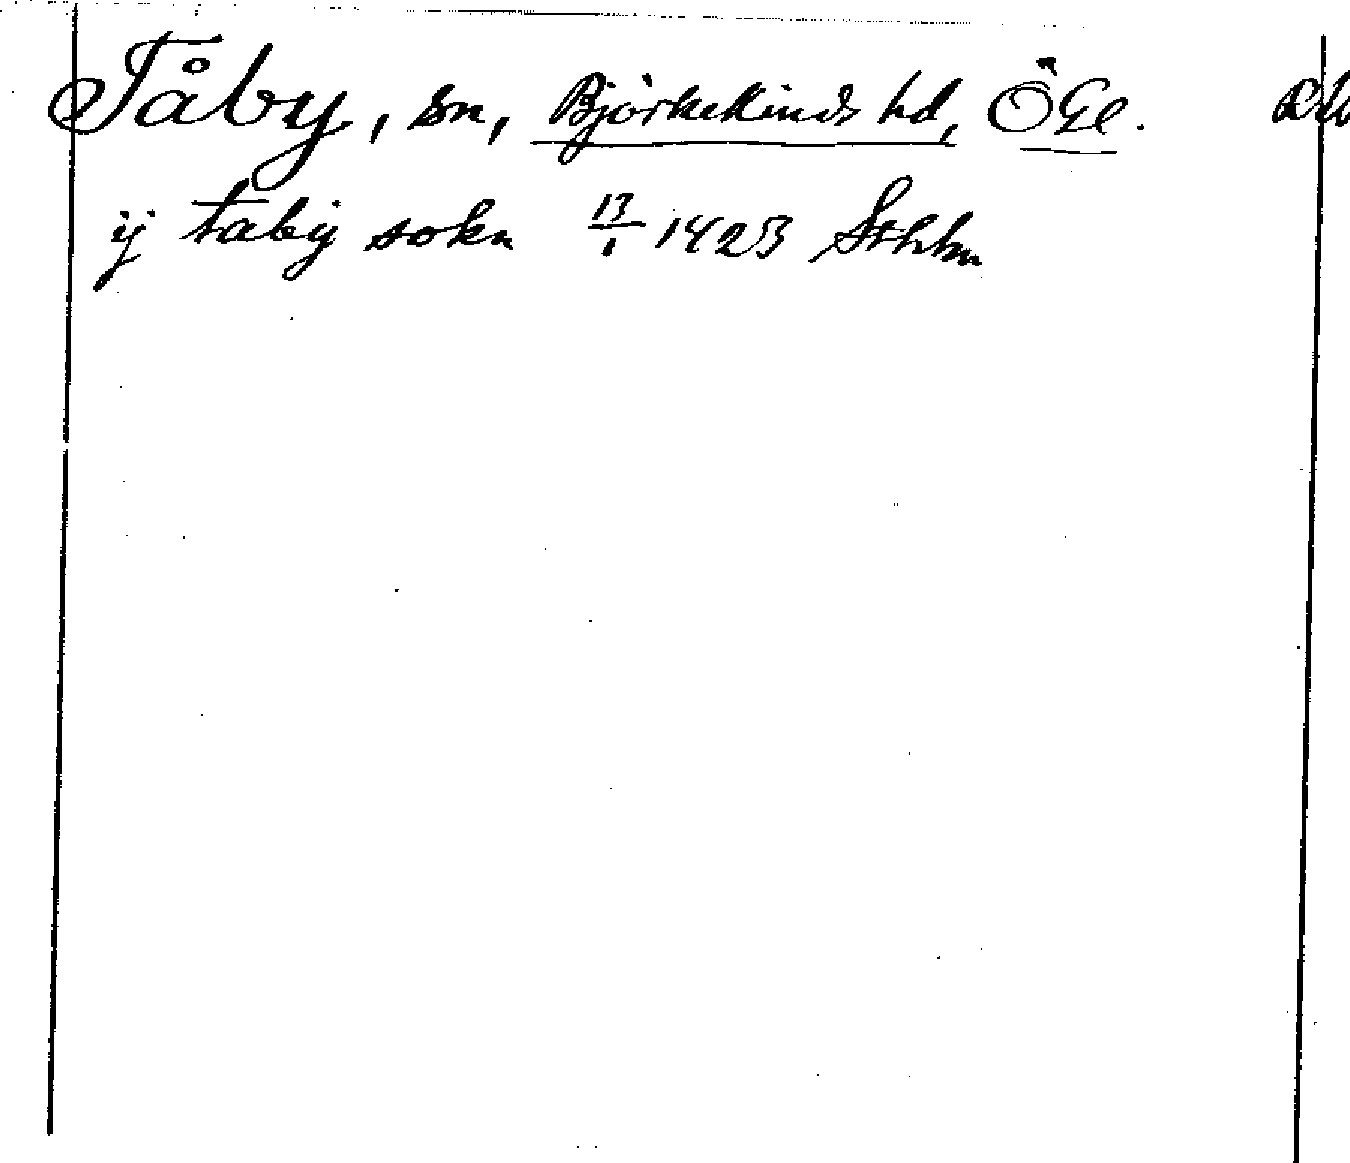 Tåby, sn, Björkekinds hd, ÖGl.
ij taby sokn 13/1 1423 Sthlm